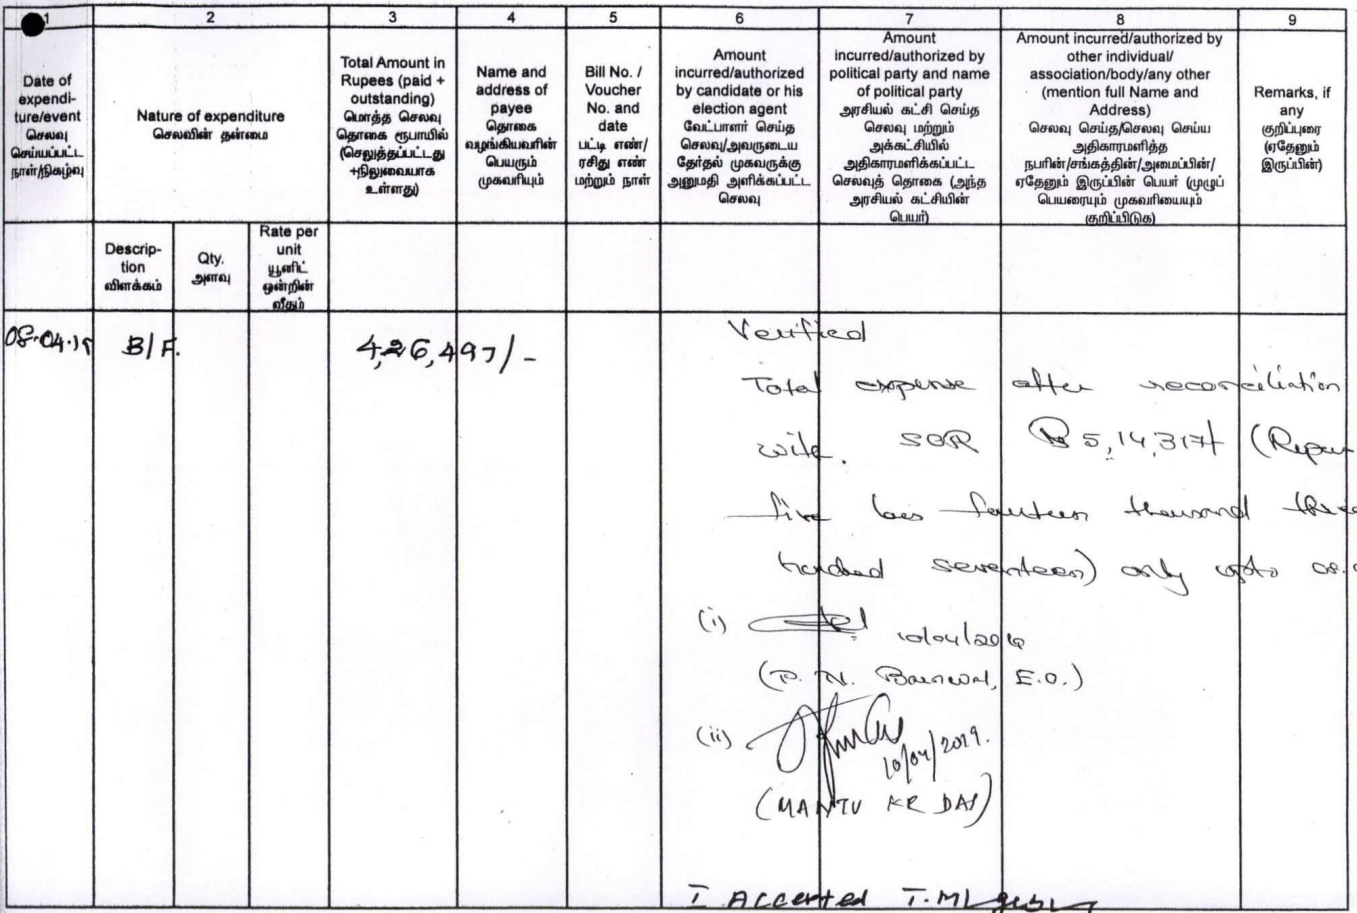 1 2 3 4 5 6 7 8 9
Date of
expendi-
ture/event
செலவு
செய்யப்பட்ட
நாள்/நிகழ்வு
Nature of expenditure
செலவின் தன்மை
Total Amount in
Rupees (paid +
outstanding)
மொத்த செலவு
தொகை ரூபாயில்
(செலுத்தப்பட்டது
+நிலுவையாக
உள்ளது)
Name and
address of
payee
தொகை
வழங்கியவரின்
பெயரும்
முகவரியும்
Bill No. /
Voucher
No. and
date
பட்டி எண்/
ரசிது எண்
மற்றும் நாள்
Amount
incurred/authorized
by candidate or his
election agent
வேட்பாளர் செய்த
செலவு/அவருடைய
தேர்தல் முகவருக்கு
அனுமதி அளிக்கப்பட்ட
செலவு
Amount
incurred/authorized by
political party and name
of political party
அரசியல் கட்சி செய்த
செலவு மற்றும்
அக்கட்சியில்
அதிகாரமளிக்கப்பட்ட
செலவுத் தொகை (அந்த
அரசியல் கட்சியின்
பெயர்)
Amount incurred/authorized by
other individual/
association/body/any other
(mention full Name and
Address)
செலவு செய்த/செலவு செய்ய
அதிகாரமளித்த
நபரின்/சங்கத்தின்/அமைப்பின்/
ஏதேனும் இருப்பின் பெயர் (முழுப்
பெயரையும் முகவரியையும்
குறிப்பிடுக)
Remarks, if
any
குறிப்புரை
(ஏதேனும்
இருப்பின்)
Descrip-
tion
விளக்கம்
Qty.
அளவு
Rate per
unit
யூனிட்
ஒன்றின்
வீதம்
B/F. 4,26,497/-
Verified
Total expense after reconciliation
with SOR Rs 5,14,317/
five lacs fourteen thousand three
hundred seventeen) only upto
(i) 10/04/2019
(P. N. Barnwal, E.O.)
(ii) 10/04/2019.
(MANTU KR DAS)
I Accepted